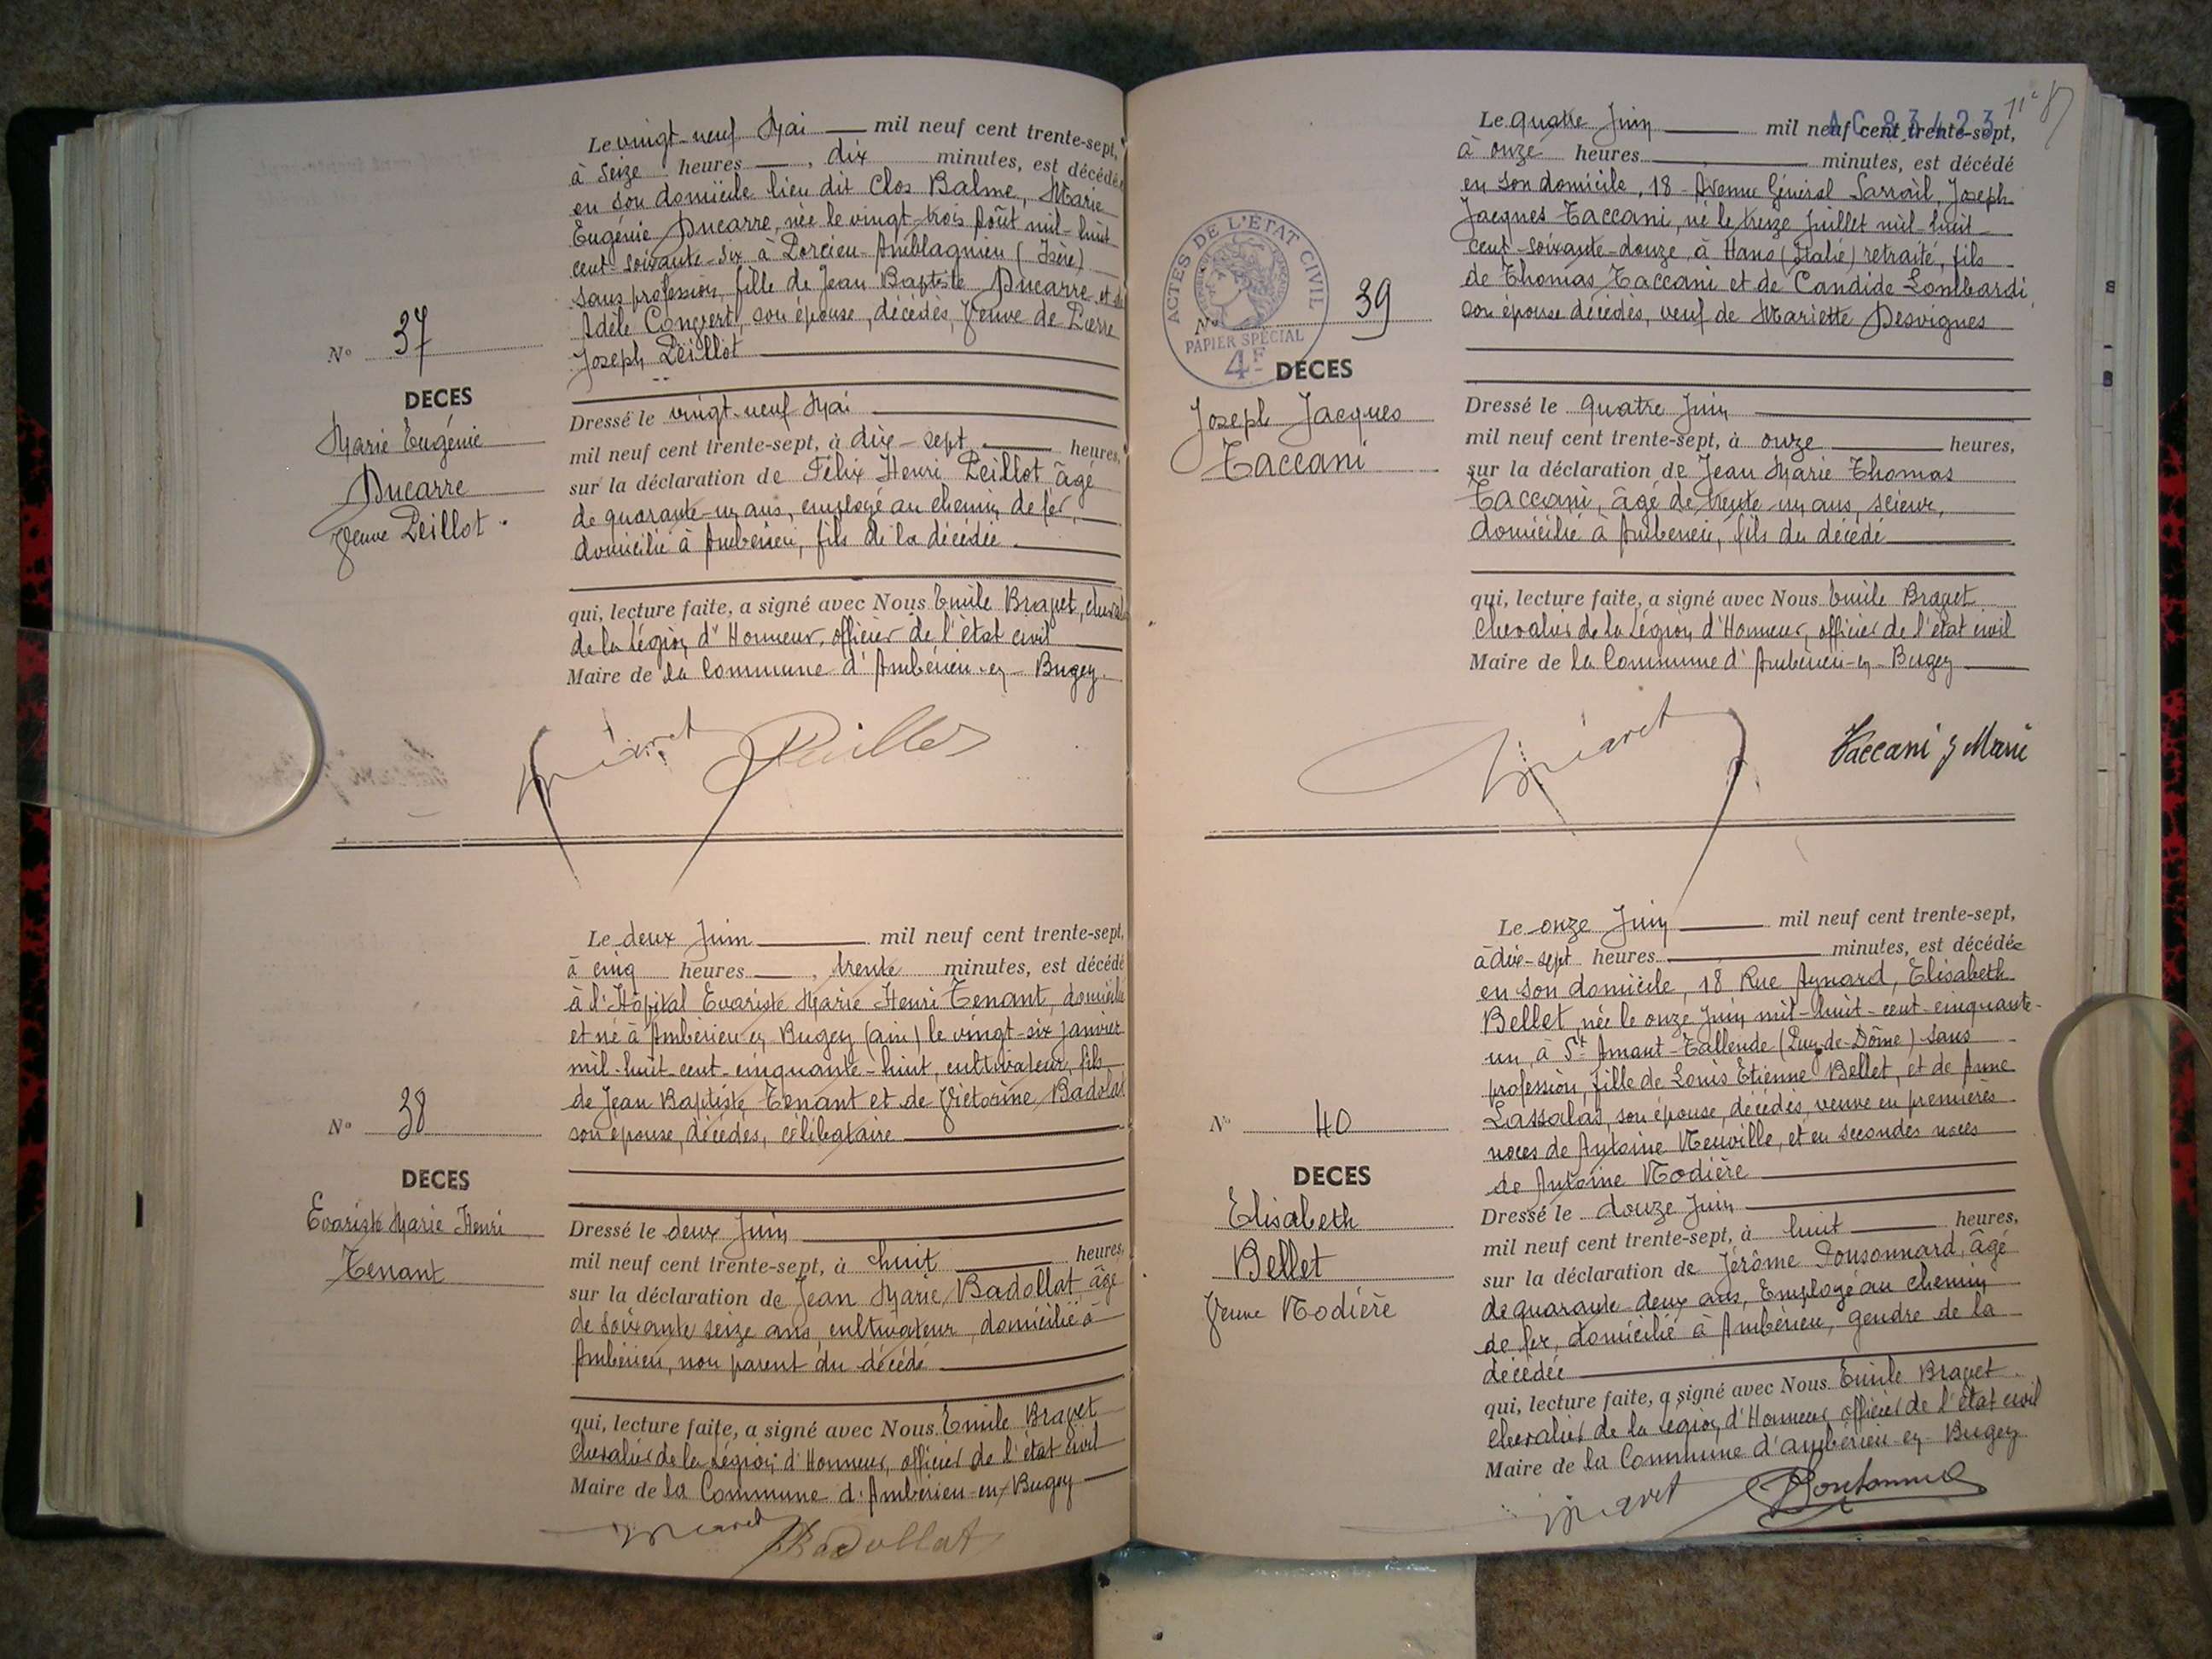 Le vingt-neuf Mai mil neuf cent trente-sept,
à seize heures , dix minutes, est décédée
en son domicile lieu dit Clos Balme, Marie
Eugénie Ducarre, née le vingt-trois Août mil-huit-
cent-soixante-six à Porcieu-Amblagnieu (Isère)
sans profession, fille de Jean Baptiste Ducarre et de
Adèle Convert, son épouse, décédés, Veuve de Pierre
Joseph Peillot
N° 37
DECES
Marie Eugénie
Ducarre
Veuve Peillot
Dressé le vingt-neuf Mai
mil neuf cent trente-sept, à dix-sept heures,
sur la déclaration de Félix Henri Peillot âgé
de quarante-un ans, employé au chemin de fer,
domicilié à Ambérieu, fils de la décédée
qui, lecture faite, a signé avec Nous Emile Bravet, cheval
de la Légion d'Honneur, officier de l'état civil
Maire de la Commune d'Ambérieu-en-Bugey
Peillot
Le deux Juin mil neuf cent trente-sept,
à cinq heures , trente minutes, est décédé
à l'Hôpital Evariste Marie Henri Tenant, domicilié
et né à Ambérieu en Bugey (ain) le vingt-six janvier
mil-huit-cent-cinquante-huit, cultivateur, fils
de Jean Baptiste Tenant et de Victorine Badolat
son épouse, décédés, célibataire
N° 38
DECES
Evariste Marie Henri
Tenant
Dressé le deux Juin
mil neuf cent trente-sept, à huit heures,
sur la déclaration de Jean Marie Badollat âgé
de soixante seize ans, cultivateur, domicilié à
Ambérieu, non parent du décédé
qui, lecture faite, a signé avec Nous Emile Bravet
chevalier de la Légion d'Honneur, officier de l'état civil
Maire de la Commune d'Ambérieu-en-Bugey
Badollat
AC 83423
Le quatre Juin mil neuf cent trente-sept,
à onze heures minutes, est décédé
en son domicile, 18 - Avenue Général Sarrail, Joseph
Jacques Taccani, né le treize Juillet mil-huit-
cent-soixante-douze, à Hano (Italie) retraité, fils
de Thomas Taccani et de Candide Lombardi
son épouse décédés, veuf de Mariette Desvignes
ACTES DE L'ETAT CIVIL
PAPIER SPECIAL
4F
N° 39
DECES
Joseph Jacques
Taccani
Dressé le quatre Juin
mil neuf cent trente-sept, à onze heures,
sur la déclaration de Jean Marie Thomas
Taccani, âgé de trente-un ans, scieur,
domicilié à Ambérieu, fils du décédé
qui, lecture faite, a signé avec Nous Emile Bravet
chevalier de la Légion d'Honneur, officier de l'état civil
Maire de la Commune d'Ambérieu-en-Bugey
Taccani J Marie
Le onze Juin mil neuf cent trente-sept,
à dix-sept heures minutes, est décédée
en son domicile, 18 Rue Aynard, Elisabeth
Bellet, née le onze Juin mil-huit-cent-cinquante-
un, à St Amant-Tallende (Puy-de-Dôme) sans
profession, fille de Louis Etienne Bellet, et de Anne
Lassalas, son épouse, décédés, veuve en premières
noces de Antoine Neuville, et en secondes noces
de Antoine Nodière
N° 40
DECES
Elisabeth
Bellet
Veuve Nodière
Dressé le douze Juin
mil neuf cent trente-sept, à huit heures,
sur la déclaration de Jérôme Ponsonnard, âgé
de quarante-deux ans, Employé au chemin
de fer, domicilié à Ambérieu, gendre de la
décédée
qui, lecture faite, a signé avec Nous Emile Bravet
chevalier de la Légion d'Honneur, officier de l'état civil
Maire de la Commune d'ambérieu-en-Bugey